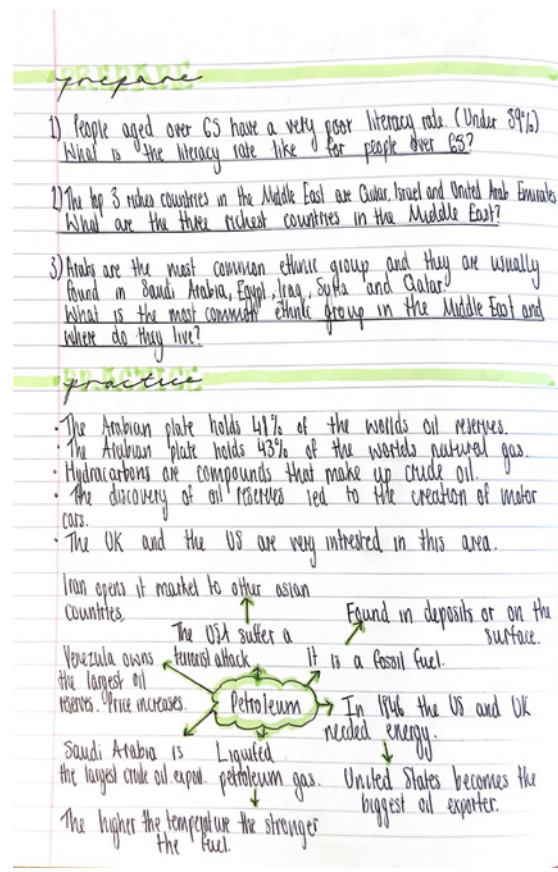 prepare
1) People aged over 65 have a very poor literacy rate. (Under 39%)
What is the literacy rate like for people over 65?
2) The top 3 riches countries in the Middle East are Qatar, Israel and United Arab Emirates
What are the three richest countries in the Middle East?
3) Arabs are the most common ethnic group and they are usually
found in Saudi Arabia, Egypt, Iraq, Syria and Qatar.
What is the most common ethnic group in the Middle East and
where do they live?
practice
• The Arabian plate holds 48% of the worlds oil reserves.
• The Arabian plate holds 43% of the worlds natural gas.
• Hydracarbons are compounds that make up crude oil.
• The discovery of oil reserves led to the creation of motor
cars.
• The UK and the US are very intrested in this area.
Iran opens it market to other asian
countries.
Found in deposits or on the
surface.
The USA suffer a
terrorist attack
It is a fossil fuel.
Venezula owns
the largest oil
reserves. Price increases.
Petroleum
In 1846 the US and UK
needed energy.
Saudi Arabia is
the largest crude oil export.
Liquified
petroleum gas.
United States becomes the
biggest oil exporter.
The higher the temperature the stronger
the fuel.